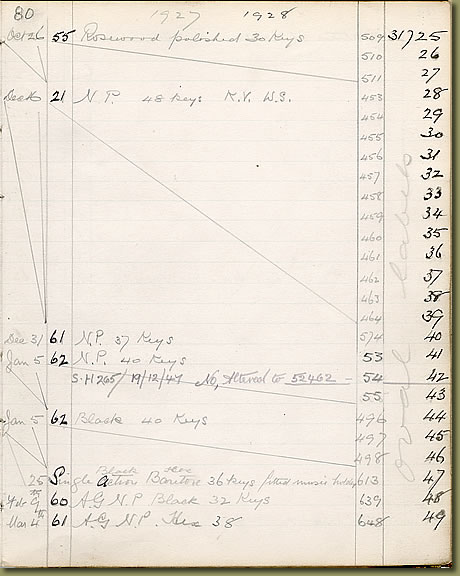 80 1927 1928
Oct 26 55 Rosewood polished 30 Keys 509 31725
510 26
511 27
Dec 6 21 N.P. 48 Keys K.V. W.S. 453 28
454 29
455 30
456 31
457 32
458 33
459 34
460 35
461 36
462 37
463 38
464 39
Dec 31 61 N.P. 37 Keys 574 40
Jan 5 62 N.P. 40 Keys 53 41
S.H 265/19/12/47 No, Altered to 52462 - 54 42
55 43
Jan 5 62 Black 40 Keys 496 44
497 45
498 46
Black Hex
25 Single Action Baritone 36 keys fitted music holder 613 47
Feb 9th 60 AG N.P Black 32 Keys 639 48
Mar 4th 61 AG N.P. Hex 38 648 49
oval labels